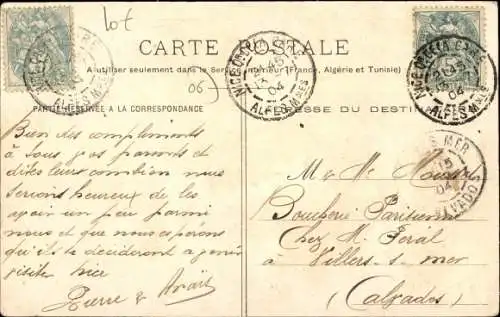 lot
CARTE POSTALE
A utiliser seulement dans le Service Intérieur (France, Algérie et Tunisie)
06
PARTIE RÉSERVÉE A LA CORRESPONDANCE
ADRESSE DU DESTINATAIRE
NICE
ALPES Mmes
04
Bien des compliments
à tous vos parents et
dites leur combien nous
serions heureux de les
avoir un peu parmi
nous et que nous espérons
qu'ils se décideront à venir
visiter Nice
Pierre &
M. & Me
Boucherie Parisienne
Chez M.
à Villers-s-mer
(Calvados)
S MER
15
04
VADOS